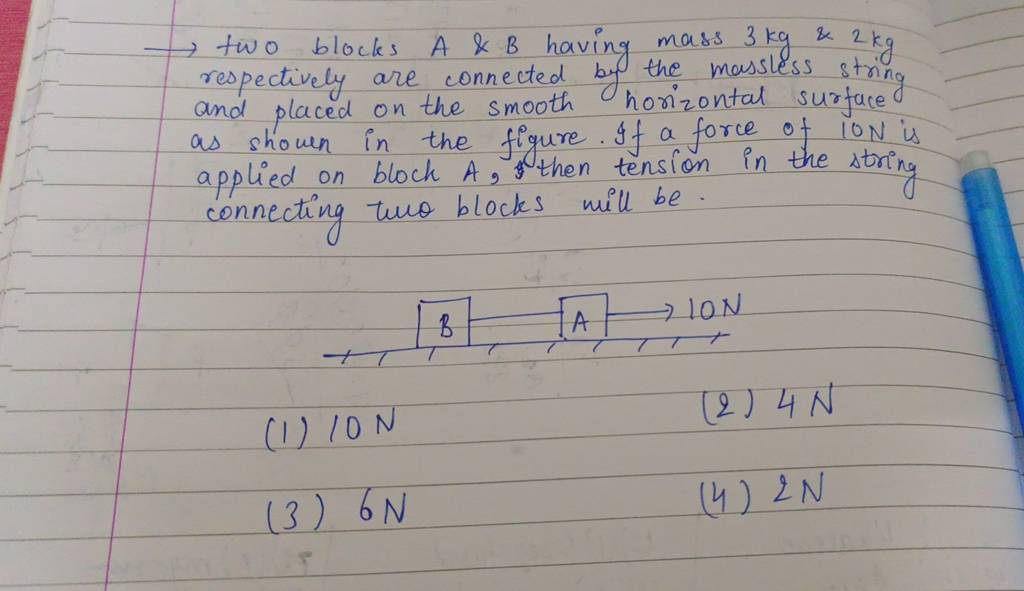 → two blocks A & B having mass 3 kg & 2 kg
respectively are connected by the massless string
and placed on the smooth horizontal surface
as shown in the figure. If a force of 10N is
applied on block A, then tension in the string
connecting two blocks will be.
B A → 10N
(1) 10 N (2) 4 N
(3) 6N (4) 2N